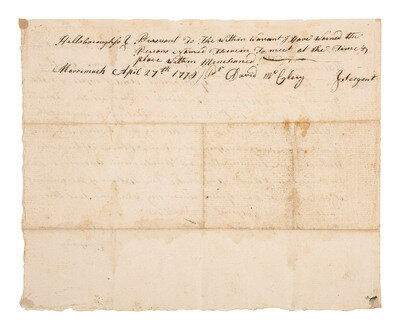 Hillsborough ss Pursuant To The within warrant I Have warned the
Persons Named Therein To meet at the Time &
place within Mentioned
Merrimack April 27th 1779 Pr David McClery Sergent